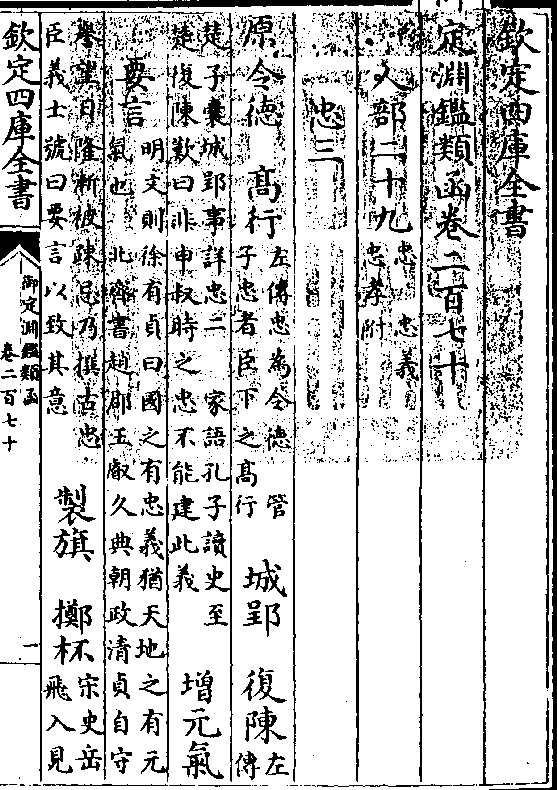 欽定四庫全書
定淵鑑類函卷二百七十
人部二十九 忠 忠義
忠孝附
忠三
原令德 髙行 左傳忠為令德 管
子忠者臣下之髙行 城郢 復陳 左
傳
楚子囊城郢事詳忠二 家語孔子讀史至
楚復陳歎曰非申叔時之忠不能建此義 增元氣
要言 明文則徐有貞曰國之有忠義猶天地之有元
氣也 北齊書趙郡王叡久典朝政清貞自守
譽望日隆漸被疎忌乃撰古忠
臣義士號曰要言以致其意 製旗 擲杯 宋史岳
飛入見
欽定四庫全書
御定淵鑑類函
卷二百七十
一